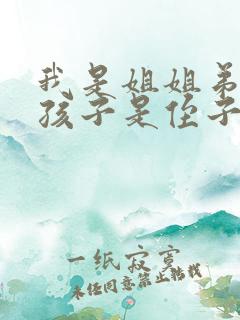 我是姐姐弟
孩子是侄子
一纸寂寞
未经同意禁止转载